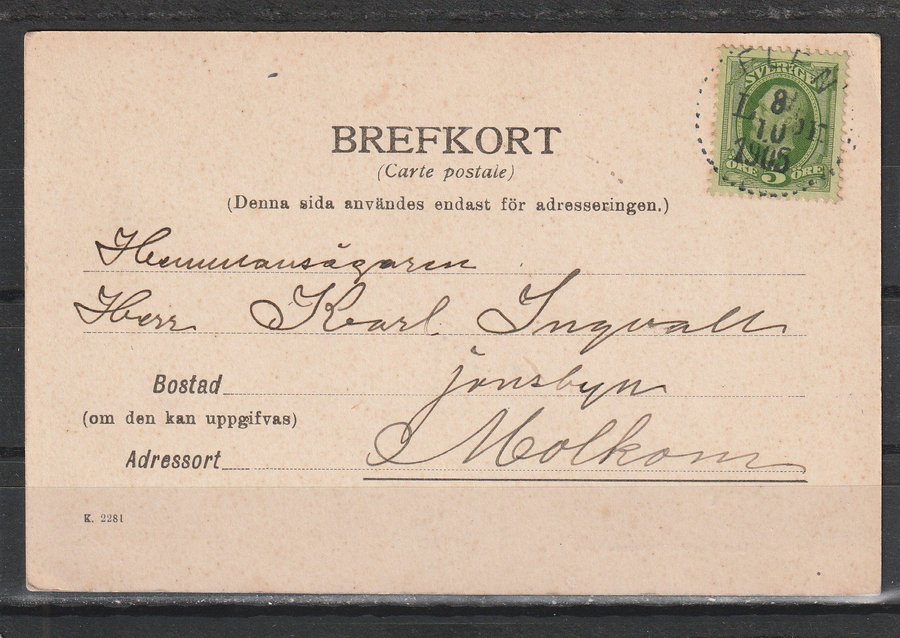 SVERIGE
8
10
1905
5
ÖRE ÖRE
BREFKORT
(Carte postale)
(Denna sida användes endast för adresseringen.)
Hemmansägaren
Herr Karl Ingvall
Bostad jonsbyn
(om den kan uppgifvas)
Adressort Molkom
K. 2281